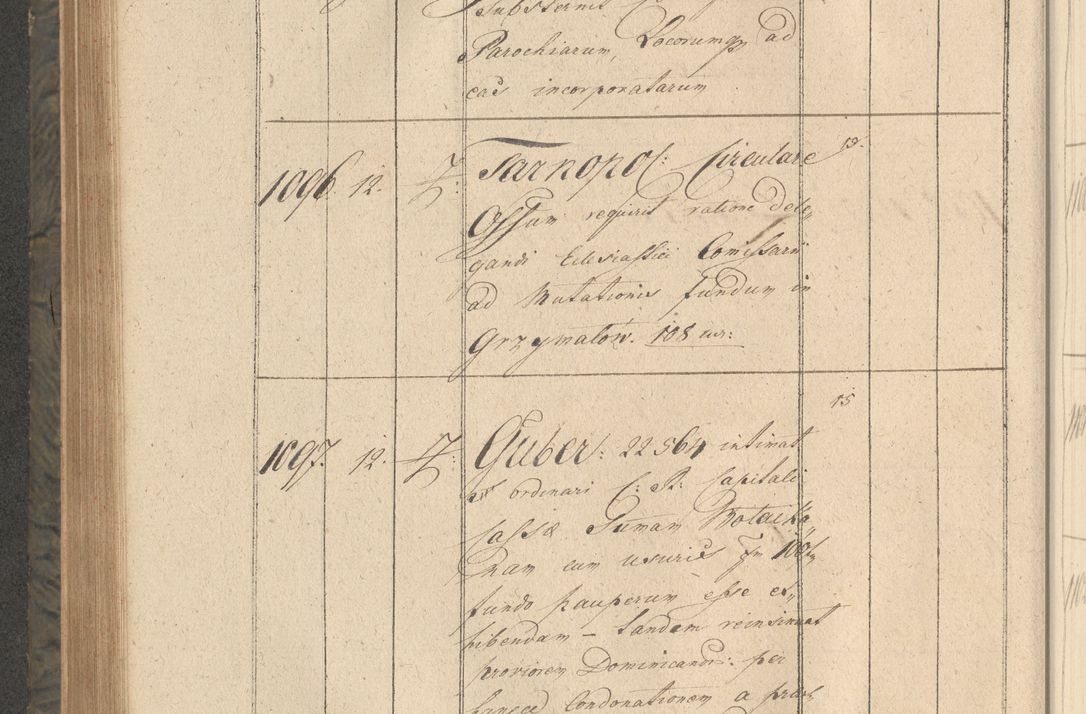 Substernit
Parochiarum, Locorumq ad
eas incorporatarum
1096. 12. Tarnopol: Circulare 13.
Offum requirit ratione dele„
gandi Eclesiastici Comissarii
ad Mutationis fundum in
Grzymałow. 108 eur:
15
1097. 12. Guber: 22564 intimat
ordinari C: R: Capitali
Cassæ Sumam
nam cum usuris
fundo pauperum esse ex„
hibendam – tandem reinsinuat
proviorem Dominicand: per
hancce Condonationem a præs„